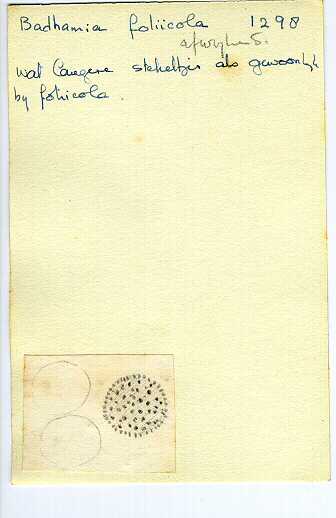 Badhamia foliicola 1298
wat langere stekeltjes als gewoonlyk
by foliicola.